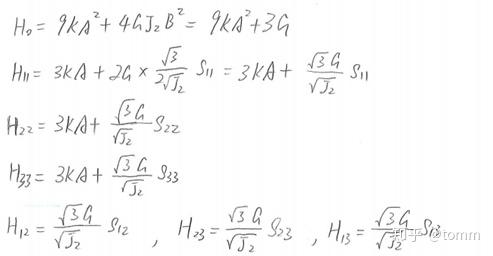 H₀ = 9KA² + 4GJ₂B² = 9KA² + 3G
H₁₁ = 3KA + 2G × √3/(2√J₂) S₁₁ = 3KA + √3G/√J₂ S₁₁
H₂₂ = 3KA + √3G/√J₂ S₂₂
H₃₃ = 3KA + √3G/√J₂ S₃₃
H₁₂ = √3G/√J₂ S₁₂ , H₂₃ = √3G/√J₂ S₂₃ , H₁₃ = √3G/√J₂ S₁₃
知乎 @tomm